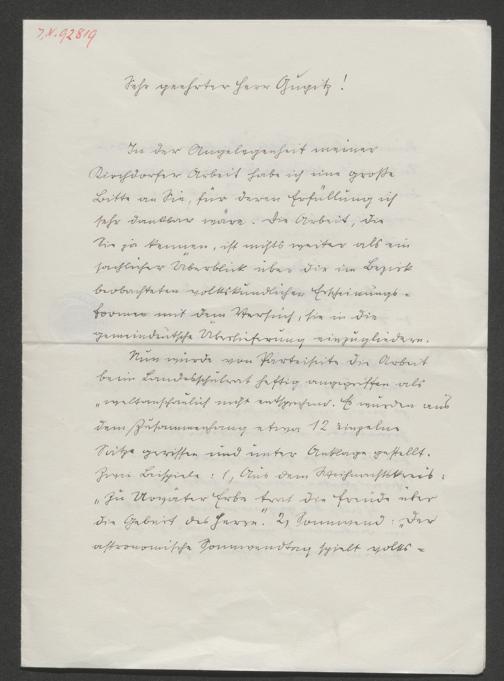 J.N. 92819
Sehr geehrter Herr Gugitz!
In der Angelegenheit meiner
Kirchdorfer Arbeit habe ich eine große
Bitte an Sie, für deren Erfüllung ich
sehr dankbar wäre. Die Arbeit, die
Sie ja kennen, ist nichts weiter als ein
sachlicher Überblick über die im Bezirk
beobachteten volkskundlichen Erscheinungs-
formen mit dem Versuch, sie in die
gemeindeutsche Überlieferung einzugliedern.
Nun wurde von Parteiseite die Arbeit
beim Landesschulrat heftig angegriffen als
"weltanschaulich nicht entsprechend. Es wurden aus
dem Zusammenhang etwa 12 einzelne
Sätze gerissen und unter Anklage gestellt.
Zwei Beispiele: 1, Aus dem Weihnachtskreis:
"Zu Urväter Erbe trat die Freude über
die Geburt des Herrn." 2, Sonnwend: "Der
astronomische Sonnwendtag spielt volks-